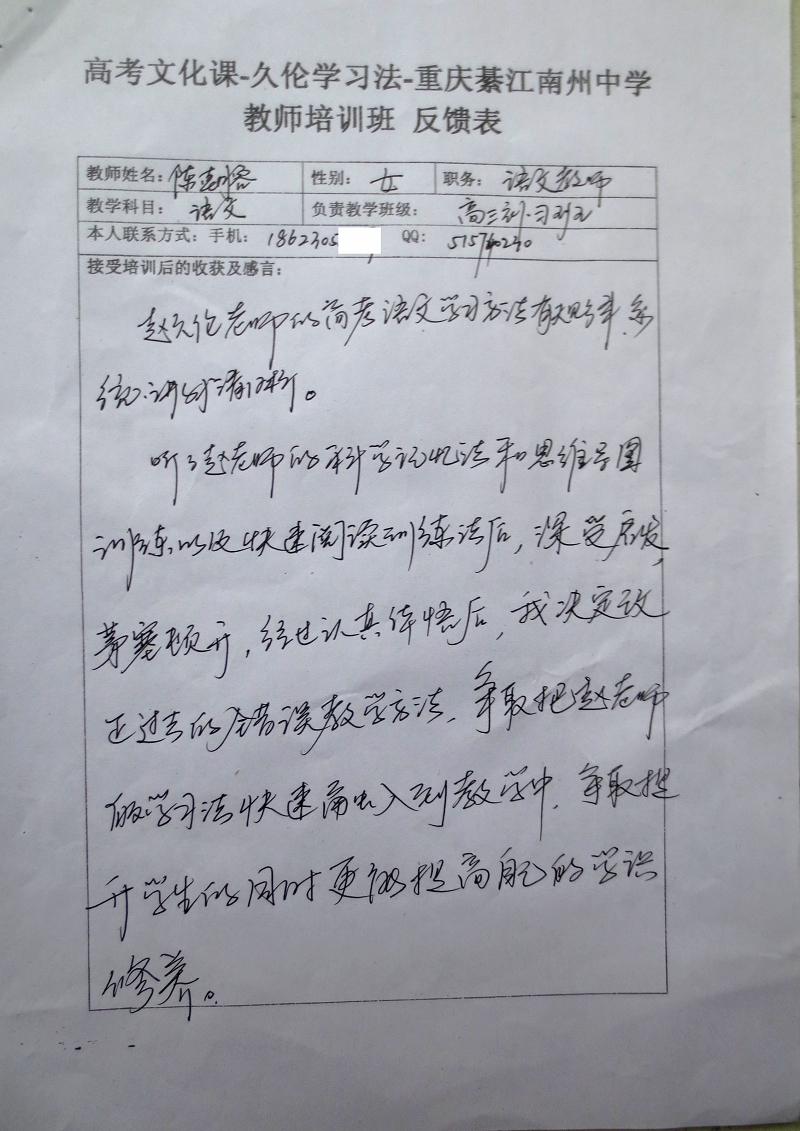 高考文化课-久伦学习法-重庆綦江南州中学
教师培训班 反馈表
教师姓名：陈 性别：女 职务：语文教师
教学科目：语文 负责教学班级：高三
本人联系方式：手机：1862305 QQ：
接受培训后的收获及感言：
赵久伦老师的高考语文学习方法有规律、系
统、讲解清晰。
听了赵老师的科学记忆法和思维导图
训练以及快速阅读训练法后，深受启发，
茅塞顿开，经过认真体悟后，我决定改
正过去的错误教学方法，争取把赵老师
的学习法快速融入到教学中，争取提
升学生的同时更能提高自己的学识
修养。